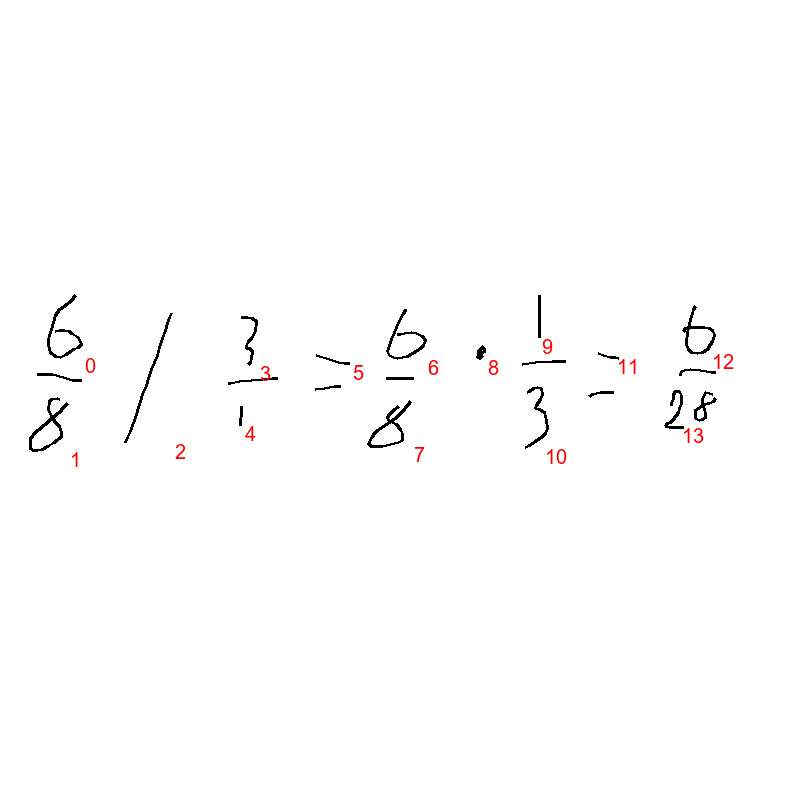 6/8 / 3/1 = 6/8 · 1/3 = 6/28
0 1 2 3 4 5 6 7 8 9 10 11 12 13